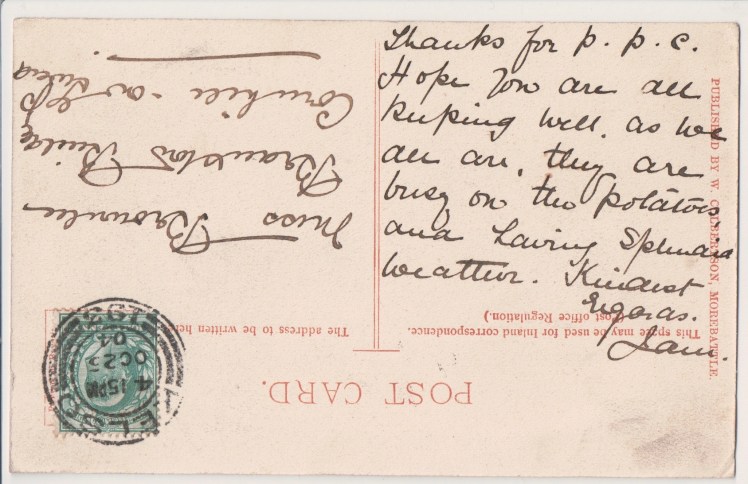 Thanks for p. p. c.
Hope you are all
keeping well, as we
all are, they are
busy on the potatoes,
and having splendid
weather. Kindest
Regards.
Jam.
POST CARD.
This space may be used for Inland correspondence.
(Post office Regulation.)
The address to be written here
Miss Brownlee
Branxton
Cornhill-on-Tweed
PUBLISHED BY W. CULBERTSON, MOREBATTLE.
KELSO
4.15PM
OC 23
04